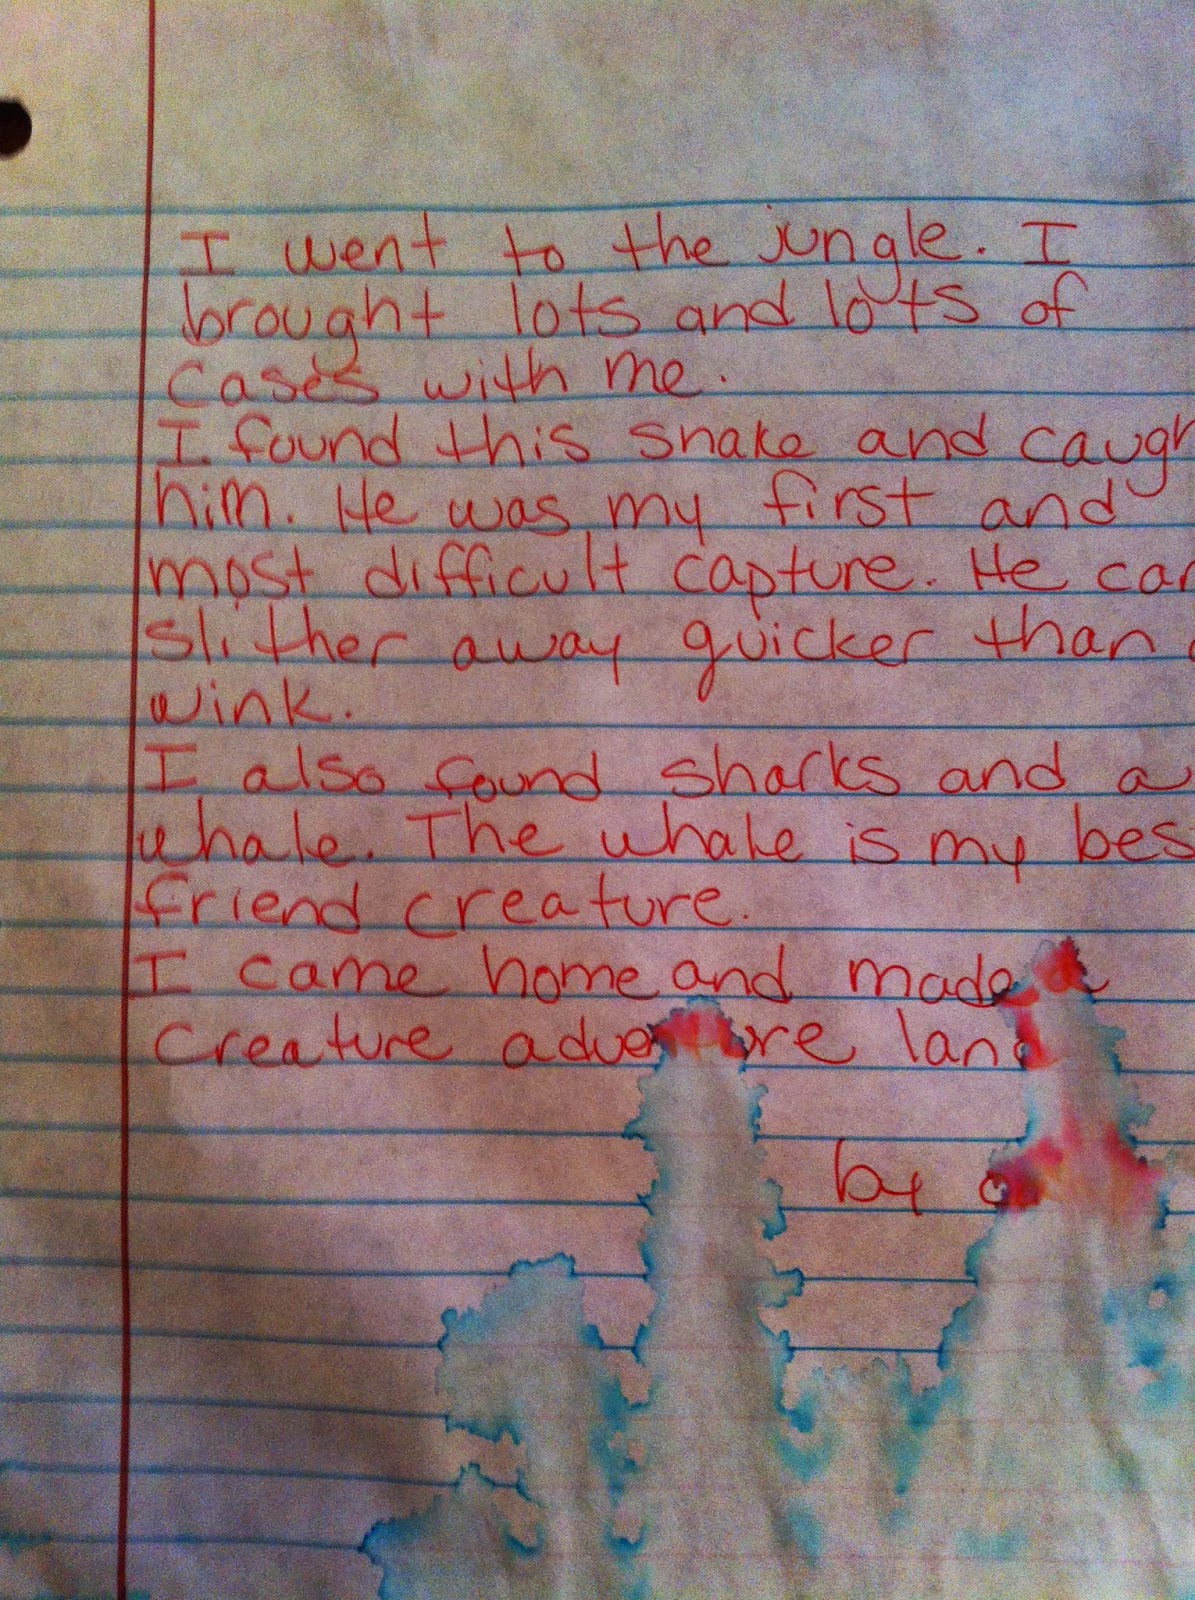 I went to the jungle. I
brought lots and lots of
cases with me.
I found this snake and caugh
him. He was my first and
most difficult capture. He can
slither away quicker than
wink.
I also found sharks and a
whale. The whale is my bes
friend creature.
I came home and made a
creature adventure land
by